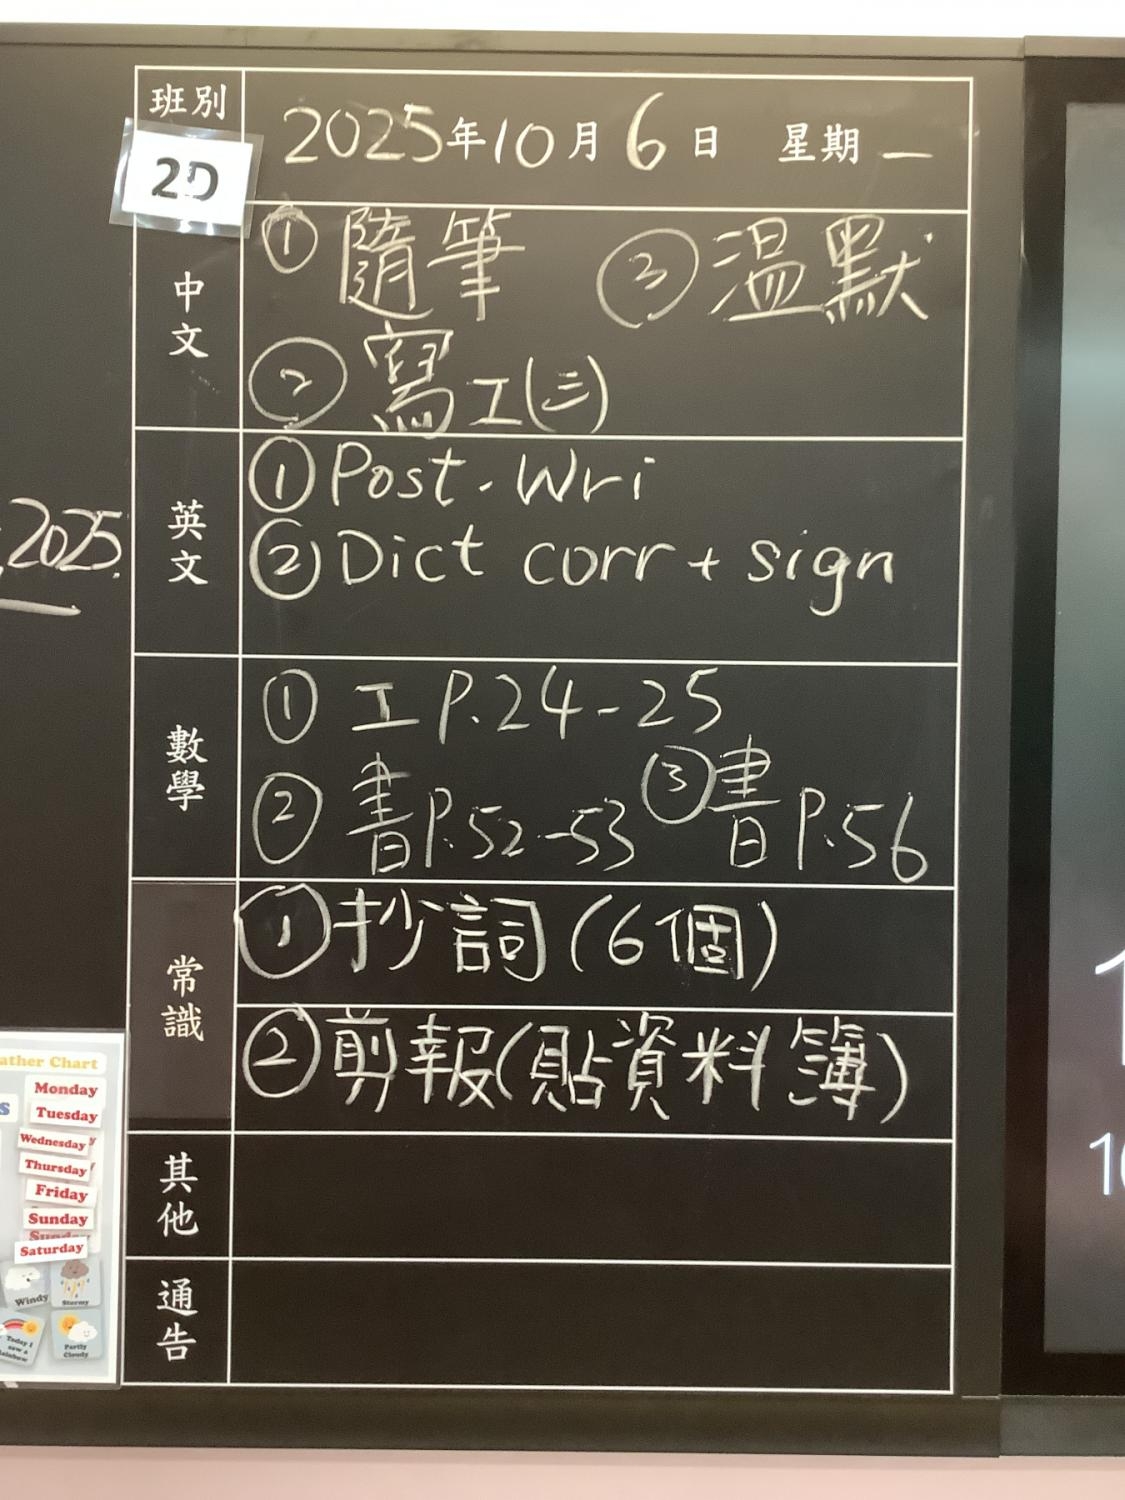 班別
2D
2025年10月6日 星期一
中文
① 隨筆 ③ 溫默
② 寫工(三)
英文
① Post-Wri
② Dict corr + sign
數學
① 工 P.24-25
② 書 P.52-53 ③ 書 P.56
常識
① 抄詞 (6個)
② 剪報(貼資料簿)
其他
通告
2025.
ather Chart
Monday
s
Tuesday
Wednesday
Thursday
Friday
Sunday
Saturday
Windy
Stormy
Today I
saw a
Partly
Cloudy